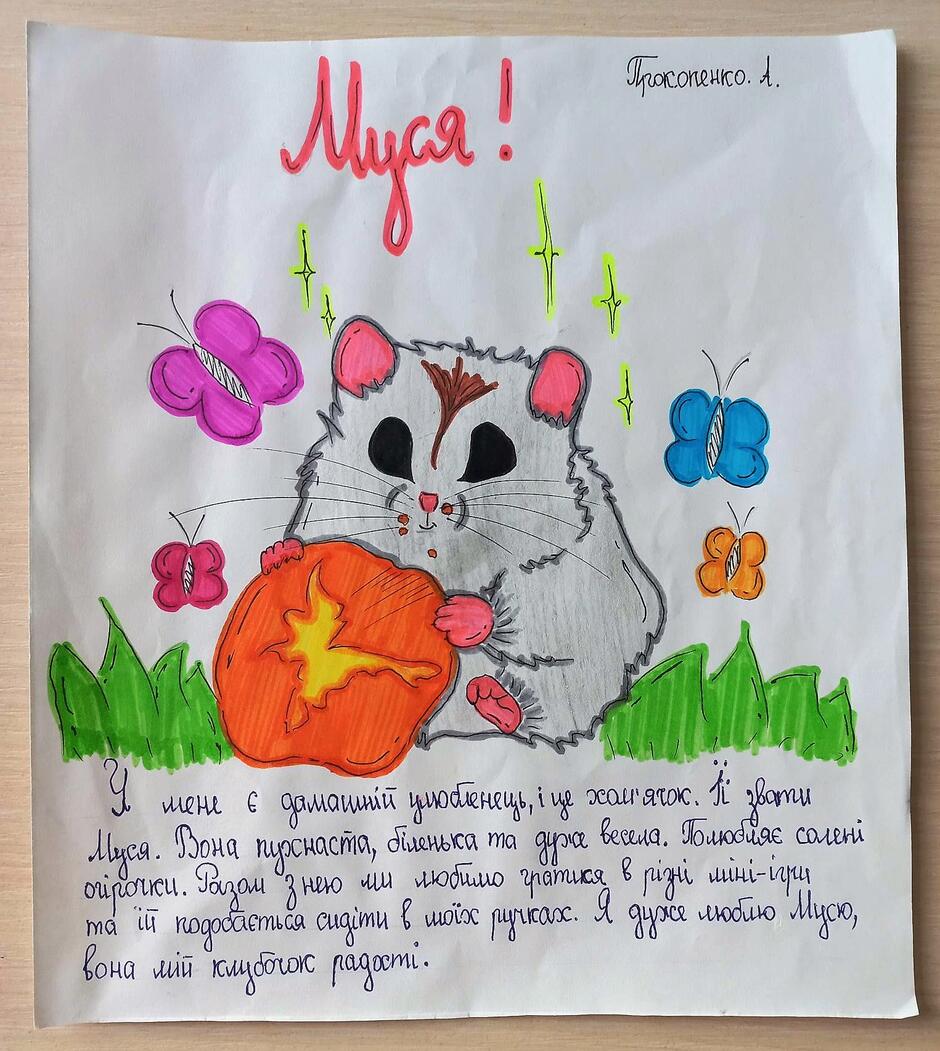 Муся!
Прокопенко. А.
У мене є дамашній улюбленець, і це хом'ячок. Її звати
Муся. Вона пухнаста, біленька та дуже весела. Полюбляє солені
огірочки. Разом з нею ми любимо гратися в різні міні-ігри
та їй подобається сидіти в моїх ручках. Я дуже люблю Мусю,
вона мій клубочок радості.